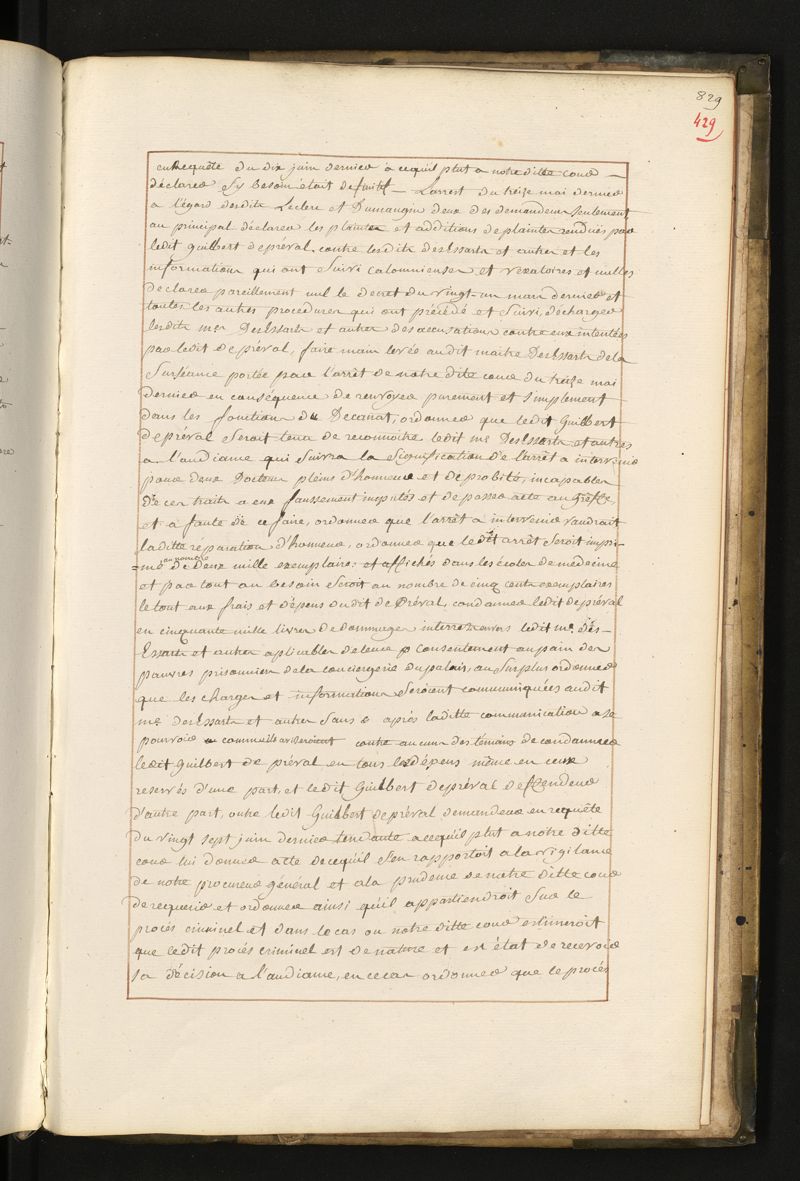 829
429
en Requête du dix juin dernier à ce quil plut a notre ditte cour
déclarer sy besoin étoit definitif L'arrest du treize mai dernier
a l'égard desdits Leclerc et Dumangin deux des demandeurs seulement
au principal déclarer les plaintes et additions de plaintes rendues par
ledit Guilbert de préval, contre lesdits DesEssarts et autres et les
informations qui ont suivi calomnieuses et vexatoires et nulles
declarer pareillement nul le decret du vingt-un mars dernier et
toutes les autres procedures qui ont précédé et suivi, décharger
lesdits mes DesEssarts et autres des accusations contre eux intentées
par ledit de préval, faire main levée audit maitre DesEssarts de la
surséance portée par l'arrêt de notre dite cour du treize mai
dernier en conséquence de renvoyer purement et simplement
dans les fonctions du Decanat, ordonner que ledit Guilbert
de préval seroit tenu de reconnoitre ledit me DesEssarts et autres
a l'audiance qui suivra la signification de l'arrêt a intervenir
pour deux Docteurs pleins d'honneur et de probité, incapables
de ces traits a eux faussement imputés et de passer acte au greffe,
et a faute de ce faire, ordonner que l'arrêt a intervenir vaudrait
laditte réparation d'honneur, ordonner que ledit arrêt seroit impri-
=mé au nombre de Deux mille exemplaires et affichés dans les écoles de médecine
et par tout au besoin seroit au nombre de cinq cents exemplaires
le tout aux frais et dépens dudit de Préval, condamner ledit de préval
en cinquante mille livres de dommages interrets envers ledit me. des-
Essarts et autres aplicables de leur consentement au pain des
pauvres prisonniers de la conciergerie du palais, au surplus ordonner
que les charges et informations seroient communiquées audit
me desEssarts et autres sans après laditte communication a se
pourvoir comme ils aviseroient contre aucuns des témoins de condamner
ledit Guilbert de préval en tous les dépens même en ceux
reservés d'une part, et ledit Guilbert de préval deffendeur
d'autre part, outre ledit Guilbert de préval demandeur en requête
du vingt sept juin dernier tendante a ce quil plut a notre ditte
cour lui donner acte de ce quil s'en rapportoit a la vigilance
de notre procureur général et a la prudence de notre ditte cour
de requerir et ordonner ainsi qu'il appartiendroit sur le
procés criminel et dans le cas ou notre ditte cour estimeroit
que ledit procés criminel est de nature et en état de recevoir
sa décision a l'audiance, en ce cas ordonner que le procés